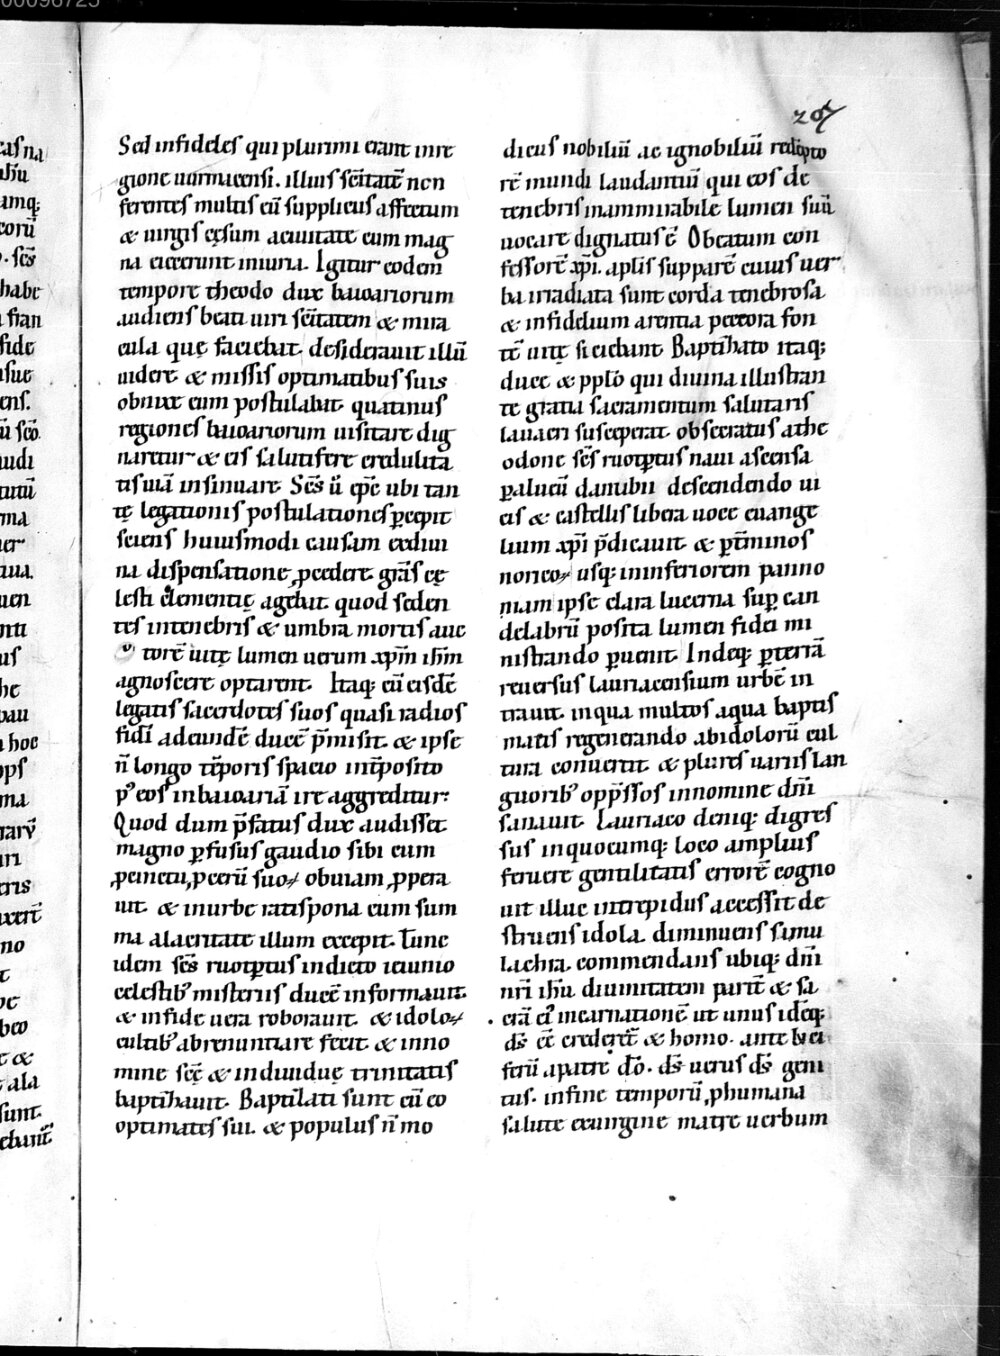 00098725
297
Sed infideles qui plurimi erant inre
gione uurmacensi. illius sc̄itatē non
ferentes multis eū suppliciis affectum
& uirgis cęsum aciuitate cum mag
na eiecerunt iniuria. Igitur eodem
tempore theodo dux bauuariorum
audiens beati uiri sc̄itatem & mira
cula quę faciebat. desiderauit illū
uidere & missis optimatibus suis
obnixe eum postulabat. quatinus
regiones bauuariorum uisitare dig
naretur & eis salutifere credulita
tis uiā insinuare. Sc̄s ū ep̄c ubi tan
tę legationis postulationes ꝑcepit
sciens huiusmodi causam exdiui
na dispensatione ꝓcedere. grās cę
lesti clementię agebat. quod seden
tes intenebris & umbra mortis auc
torē uitę lumen uerum xp̄m ih̄m
agnoscere optarent. Itaq; cū eisdē
legatis sacerdotes suos quasi radios
fidī adeundē ducē p̄misit. & ipse
n̄ longo tēporis spacio int̄posito
p᾽ eos inbauuariā ire aggreditur;
Quod dum p̄fatus dux audisset
magno ꝑfusus gaudio sibi cum
ꝓceru suoꝝ obuiam ꝓpera
uit. & inurbe ratispona eum sum
ma alacritate illum excepit. Tunc
idem sc̄s ruotꝑtus indicto ieiunio
celestib᾽ misteriis ducē informauit.
& infide uera roborauit. & idoloꝝ
cultib᾽ abrenuntiare fecit. & inno
mine scē & indiuiduę trinitatis
baptizauit. Baptizati sunt cū eo
optimates sui. & populus n̄ mo
dicus nobiliū ac ignobiliū redēpto
rē mundi laudantiū qui eos de
tenebris inammirabile lumen suū
uocare dignatus ē. Obeatum con
fessorē xp̄i. aplis supparē cuius uer
ba irradiata sunt corda tenebrosa
& infidelium arentia pectora fon
tē uitę sitiebant. Baptizato itaq;
duce & pplō qui diuina illustran
te gratia sacramentum salutaris
lauacri susceperat. obsecratus athe
odone sc̄s ruotꝑtus naui ascensa
ꝑ alueū danubii descendendo ui
cis & castellis libera uoce euange
lium xp̄i p̄dicauit. & ꝑt̄minos
noricoꝝ usq; ininferiorem panno
niam ipse clara lucerna sup̄ can
delabrū posita lumen fidei mi
nistrando ꝑuenit. Indeq; ꝑterrā
reuersus lauriacensium urbē in
trauit. inqua multos aqua baptis
matis regenerando abidolorū cul
tura conuertit. & plures uariis lan
guorib᾽ opp̄ssos innomine dn̄i
sanauit. Lauriaco deniq; digres
sus inquocumq; loco amplius
feruere gentilitatis errorē cogno
uit illuc intrepidus accessit de
struens idola. diminuens simu
lachra. commendans ubiq; dn̄i
nr̄i ih̄u diuinitatem parit̄ & sa
crā ei᾽ incarnationē ut unus idēq;
ds̄ eē crederet̄ & homo. ante luci
ferū apatre dō. ds̄ uerus ds̄ geni
tus. infine temporū ꝓhumana
salute exuirgine matre uerbum